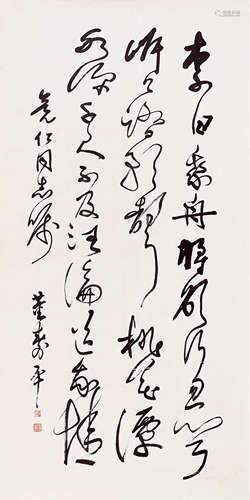 李白乘舟將欲行忽聞
岸上踏歌聲桃花潭
水深千尺不及汪倫送我情
仁同志嘱
董壽平